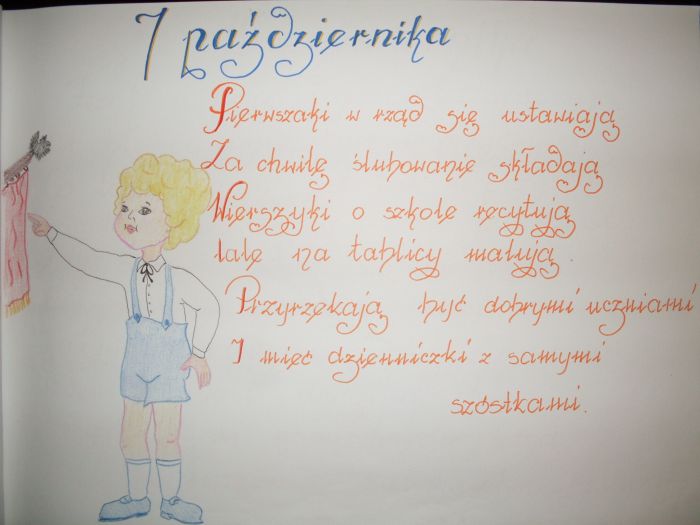 7 października
Pierwszaki w rząd się ustawiają
Za chwilę ślubowanie składają
Wierszyki o szkole recytują
lale na tablicy malują.
Przyrzekają być dobrymi uczniami
I mieć dzienniczki z samymi
szóstkami.